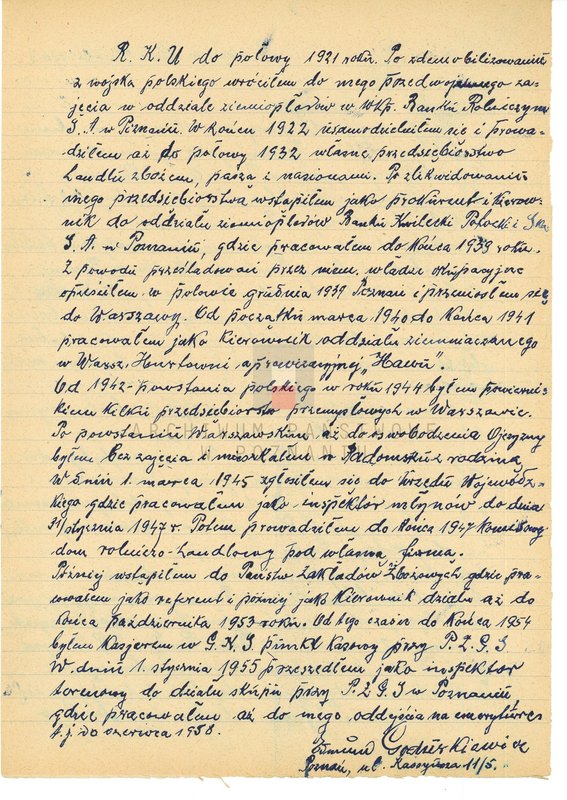 R. K. U do połowy 1921 roku. Po zdemobilizowaniu
z wojska polskiego wróciłem do mego przedwojennego za-
jęcia w oddziale ziemiopłodów w Wlkp. Banku Rolniczym
S. A. w Poznaniu. W końcu 1922 usamodzielniłem się i prowa-
dziłem aż do połowy 1932 własne przedsiębiorstwo
handlu zbożem, paszą i nasionami. Po zlikwidowaniu
mego przedsiębiorstwa wstąpiłem jako prokurent i kierow-
nik do oddziału ziemiopłodów Banku Kwilecki Potocki i Ska
S. A. w Poznaniu, gdzie pracowałem do końca 1939 roku.
Z powodu prześladowań przez niem. władze okupacyjne
opuściłem w połowie grudnia 1939 Poznań i przeniosłem się
do Warszawy. Od początku marca 1940 do końca 1941
pracowałem jako kierownik oddziału ziemniaczanego
w Warsz. Hurtowni aprowizacyjnej „Hawu".
Od 1942 - powstania polskiego w roku 1944 byłem powierni-
kiem kilku przedsiębiorstw przemysłowych w Warszawie.
Po powstaniu Warszawskim aż do oswobodzenia Ojczyzny
byłem bez zajęcia i mieszkałem w Radomsku z rodziną
W dniu 1. marca 1945 zgłosiłem się do Urzędu Wojewódz-
kiego gdzie pracowałem jako inspektor młynów do dnia
31/ stycznia 1947 r. Potem prowadziłem do końca 1947 komisowy
dom rolniczo-handlowy pod własną firmą.
Później wstąpiłem do Państw. Zakładów Zbożowych gdzie pra-
cowałem jako referent i później jako kierownik działu aż do
końca października 1953 roku. Od tego czasu do końca 1954
byłem kasjerem w G. K. S. punkt kasowy przy P. Z. G. S
W dniu 1. stycznia 1955 przeszedłem jako inspektor
terenowy do działu skupu przy P. Z G S w Poznaniu
gdzie pracowałem aż do mego odejścia na emeryturę
t. j. do czerwca 1958.
Poznań, ul. 11/5.
ARCHIWUM PAŃSTWOWE
W POZNANIU